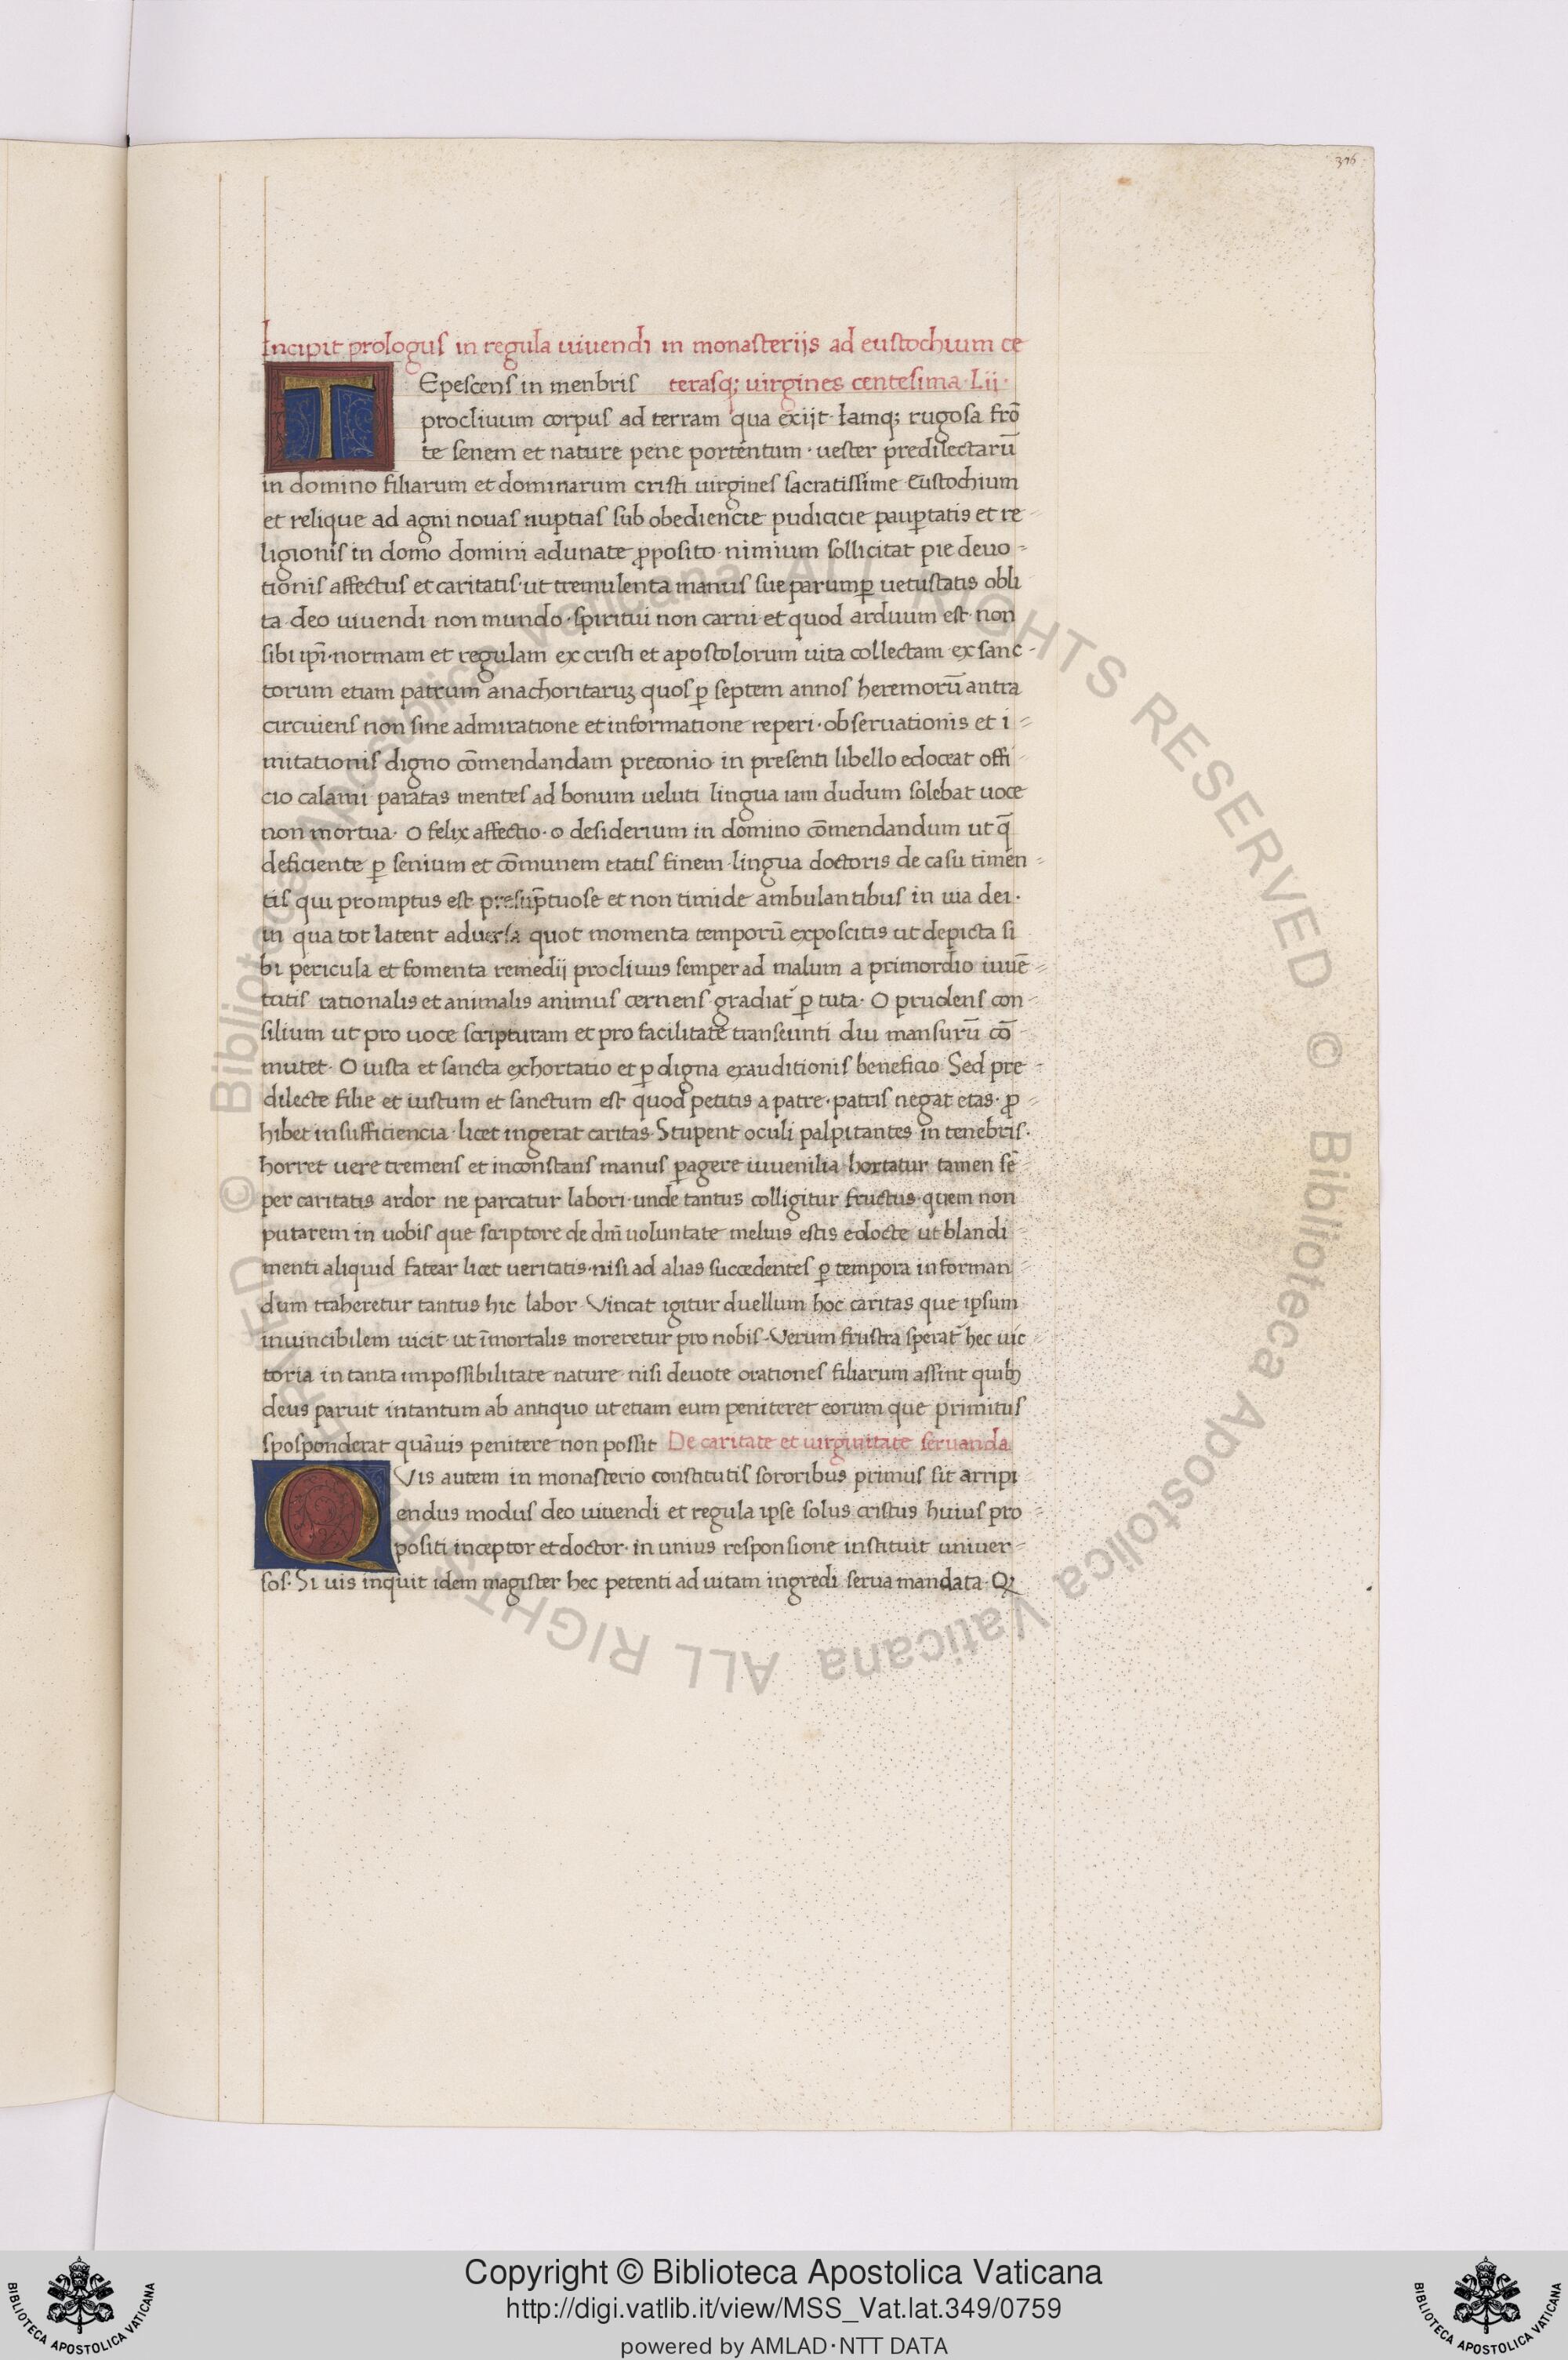 376
Incipit prologus in regula uiuendi in monasterijs ad eustochium ce
TEpescens in menbris terasq; uirgines centesima · Lij ·
procliuum corpus ad terram qua exijt · Iamq; rugosa frō
te senem et nature pene portentum · uester predilectarū
in domino filiarum et dominarum cristi uirgines sacratissime Eustochium
et relique ad agni nouas nuptias sub obediencie pudicicie paup̱tatis et re-
ligionis in domo domini adunate ꝓposito nimium sollicitat pie deuo-
tionis affectus et caritatis · ut tremulenta manus sue parump̱ uetustatis obli
ta deo uiuendi non mundo · spiritui non carni · et quod arduum est · non
sibi ip̄i · normam et regulam ex cristi et apostolorum uita collectam ex sanc-
torum etiam patrum anachoritaruꝫ quos ꝑ septem annos heremorū antra
circuiens non sine admiratione et informatione reperi · obseruationis et i-
mitationis digno cōmendandam preconio in presenti libello edoceat offi-
cio calami paratas mentes ad bonum ueluti lingua iam dudum solebat uoce
non mortua · O felix affectio · o desiderium in domino cōmendandum ut q̄
deficiente ꝑ senium et cōmunem etatis finem · lingua doctoris de casu timen-
tis qui promptus est presūptuose et non timide ambulantibus in uia dei ·
in qua tot latent aduersa quot momenta temporū exposcitis ut depicta si
bi pericula et fomenta remedij procliuus semper ad malum a primordio iuuē-
tutis rationalis et animalis animus cernens gradiat᷑ ꝑ tuta · O prudens con-
silium ut pro uoce scripturam et pro facilitate transeunti diu mansurū cō-
mutet · O iusta et sancta exhortatio et ꝑ digna exauditionis beneficio Sed pre-
dilecte filie et iustum et sanctum est quod petitis a patre · patris negat etas · ꝓ-
hibet insufficiencia · licet ingerat caritas · Stupent oculi palpitantes in tenebris ·
horret uere tremens et inconstans manus ꝑagere iuuenilia hortatur tamen sē-
per caritatis ardor ne parcatur labori · unde tantus colligitur fructus · quem non
putarem in uobis que scriptore de dm̄ uoluntate melius estis edocte ut blandi-
menti aliquid fatear licet ueritatis · nisi ad alias succedentes ꝑ tempora informan-
dum traheretur tantus hic labor · Vincat igitur duellum hoc caritas que ipsum
inuincibilem uicit · ut īmortalis moreretur pro nobis · Verum frustra sperat᷑ hec uic-
toria in tanta impossibilitate nature nisi deuote orationes filiarum assint quibꝫ
deus paruit intantum ab antiquo ut etiam eum peniteret eorum que primitus
sposponderat quāuis penitere non possit De caritate et uirginitate seruanda
QVis autem in monasterio constitutis sororibus primus sit arripi-
endus modus deo uiuendi et regula ipse solus cristus huius pro-
positi inceptor et doctor · in unius responsione instituit uniuer-
sos · Si uis inquit idem magister hec petenti ad uitam ingredi serua mandata · Qꝫ
Copyright © Biblioteca Apostolica Vaticana
http://digi.vatlib.it/view/MSS_Vat.lat.349/0759
powered by AMLAD·NTT DATA
BIBLIOTECA APOSTOLICA VATICANA
BIBLIOTECA APOSTOLICA VATICANA
© Biblioteca Apostolica Vaticana ALL RIGHTS RESERVED © Biblioteca Apostolica Vaticana ALL RIGHTS RESERVED